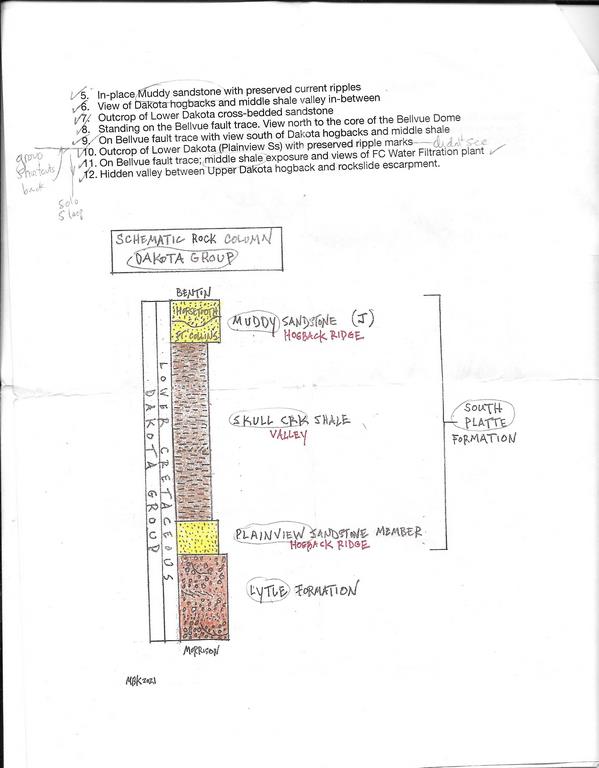 5. In-place Muddy sandstone with preserved current ripples
6. View of Dakota hogbacks and middle shale valley in-between
7. Outcrop of Lower Dakota cross-bedded sandstone
8. Standing on the Bellvue fault trace. View north to the core of the Bellvue Dome
9. On Bellvue fault trace with view south of Dakota hogbacks and middle shale
10. Outcrop of Lower Dakota (Plainview Ss) with preserved ripple marks
didn't see
11. On Bellvue fault trace; middle shale exposure and views of FC Water Filtration plant
12. Hidden valley between Upper Dakota hogback and rockslide escarpment.
group
shortcuts
back
solo
SCHEMATIC ROCK COLUMN
DAKOTA GROUP
BENTON
HORSETOOTH
FT. COLLINS
MUDDY SANDSTONE (J)
HOGBACK RIDGE
SKULL CRK SHALE
VALLEY
SOUTH
PLATTE
FORMATION
LOWER CRETACEOUS
DAKOTA GROUP
PLAINVIEW SANDSTONE MEMBER
HOGBACK RIDGE
LYTLE FORMATION
MORRISON
MBK2021